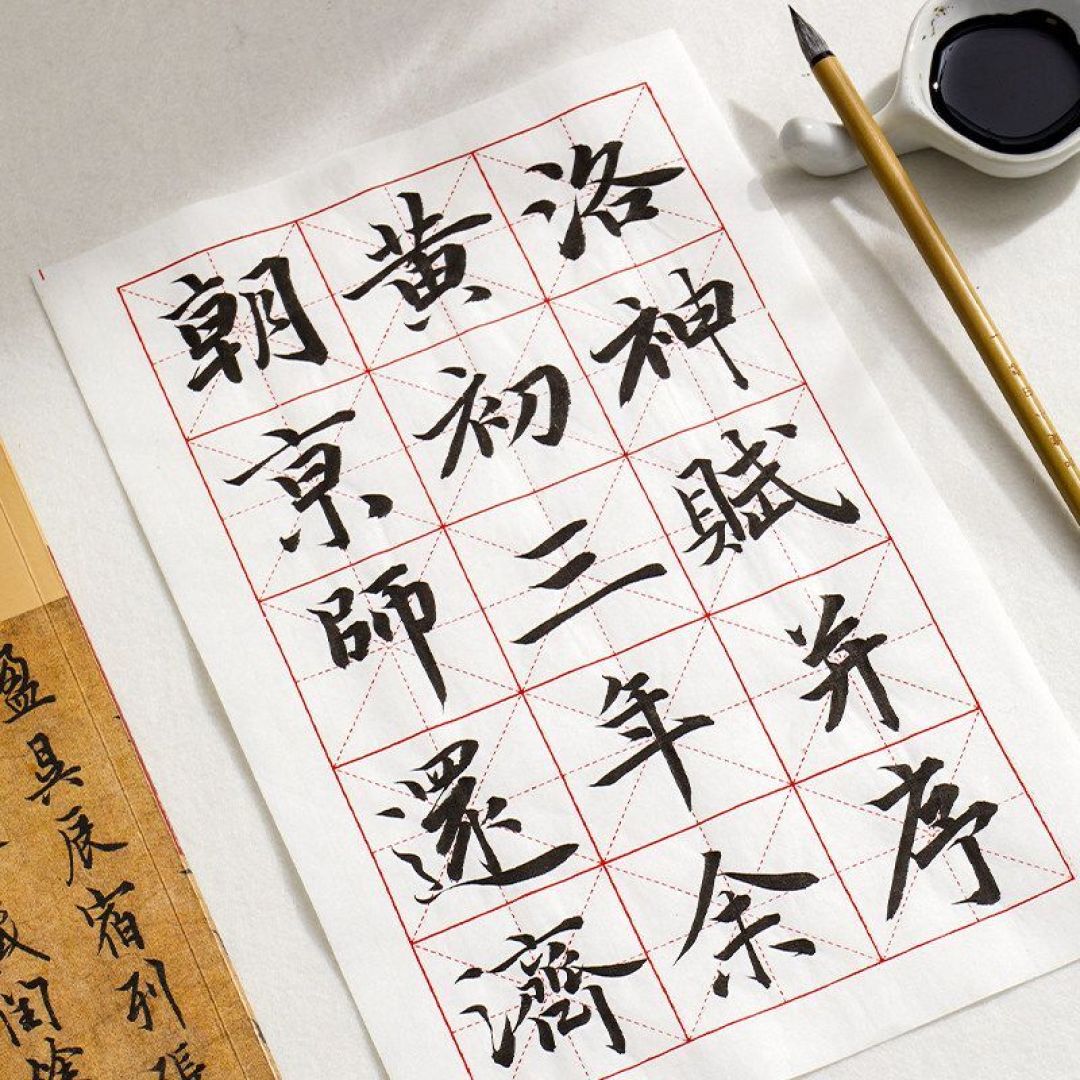 洛神賦并序
黄初三年余
朝京師還濟
宿列張
盈昃辰
閏